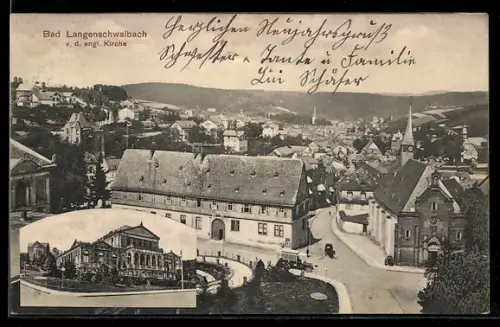 Bad Langenschwalbach
v. d. engl. Kirche
Herzlichen Neujahrsgruß
Schwester u Tante u Familie
Schäfer